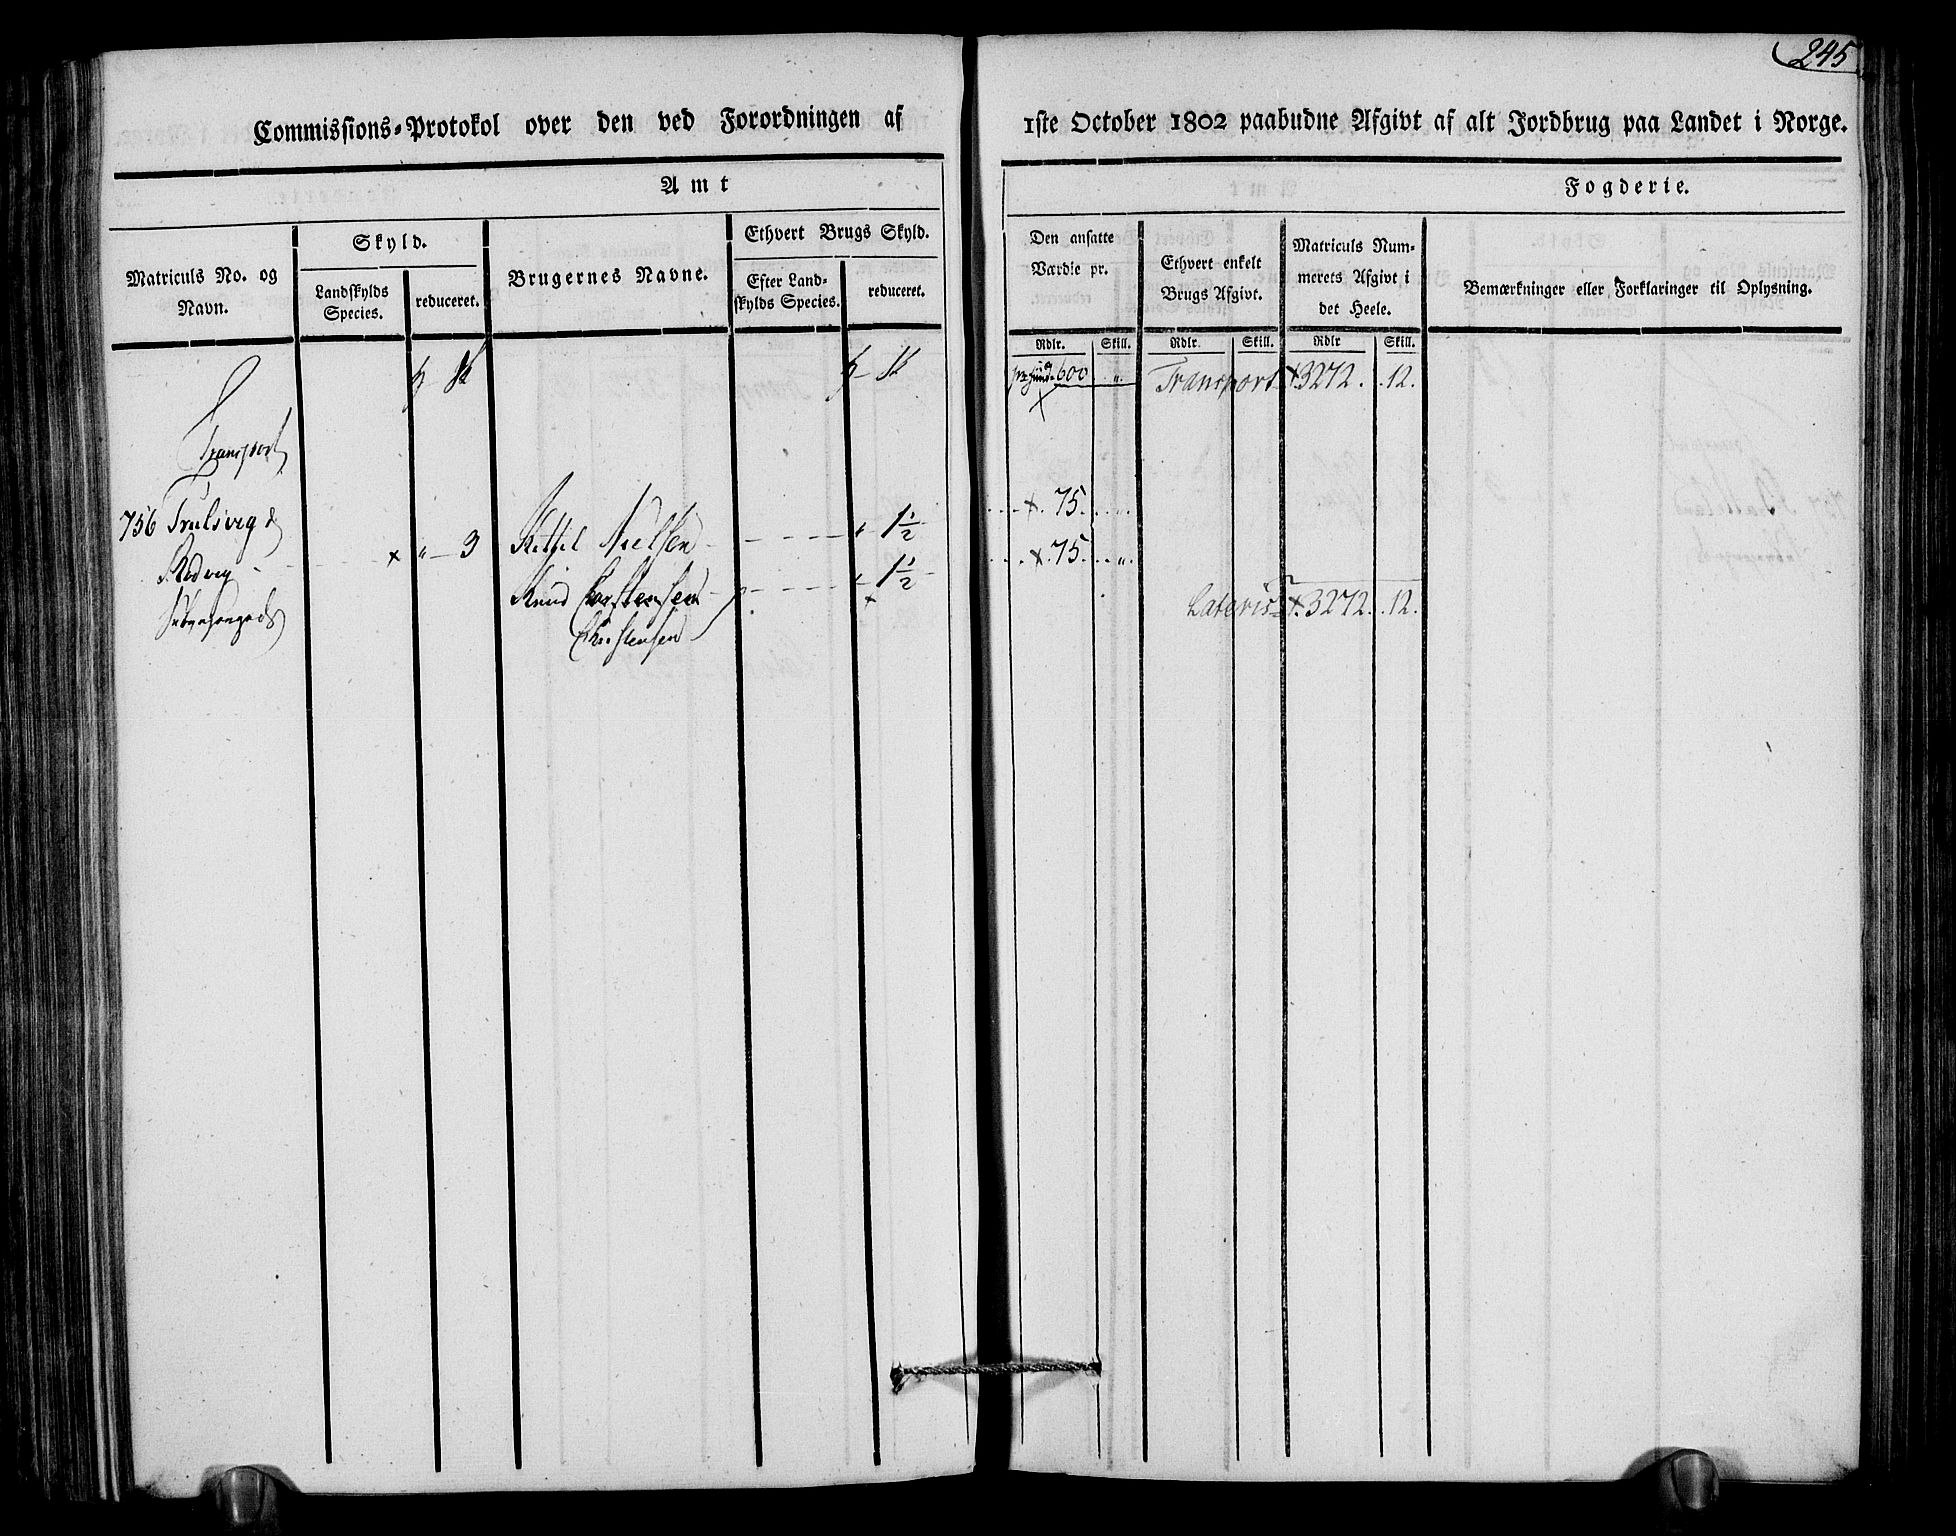 245
Commissions-Protokol over den ved Forordningen af 1ste October 1802 paabudne Afgivt af alt Jordbrug paa Landet i Norge.
Amt
Fogderie.
Matriculs No. og Navn.
Skyld.
Landskylds Species.
reduceret.
Brugernes Navne.
Ethvert Brugs Skyld.
Efter Landskylds Species.
reduceret.
Den ansatte Værdie pr.
Ethvert enkelt Brugs Afgivt.
Matriculs Nummerets Afgivt i det Heele.
Bemærkninger eller Forklaringer til Oplysning.
Rdlr. Skill. Rdlr. Skill. Rdlr Skill.
600 " Transport 3272. 12.
Transport
756 Trulsvig &
" 3 Kittil Nielsen " 1½ 75. "
Rodvig
Knud Carstensen " 1½ 75. "
Christensen
Lateris 3272. 12.